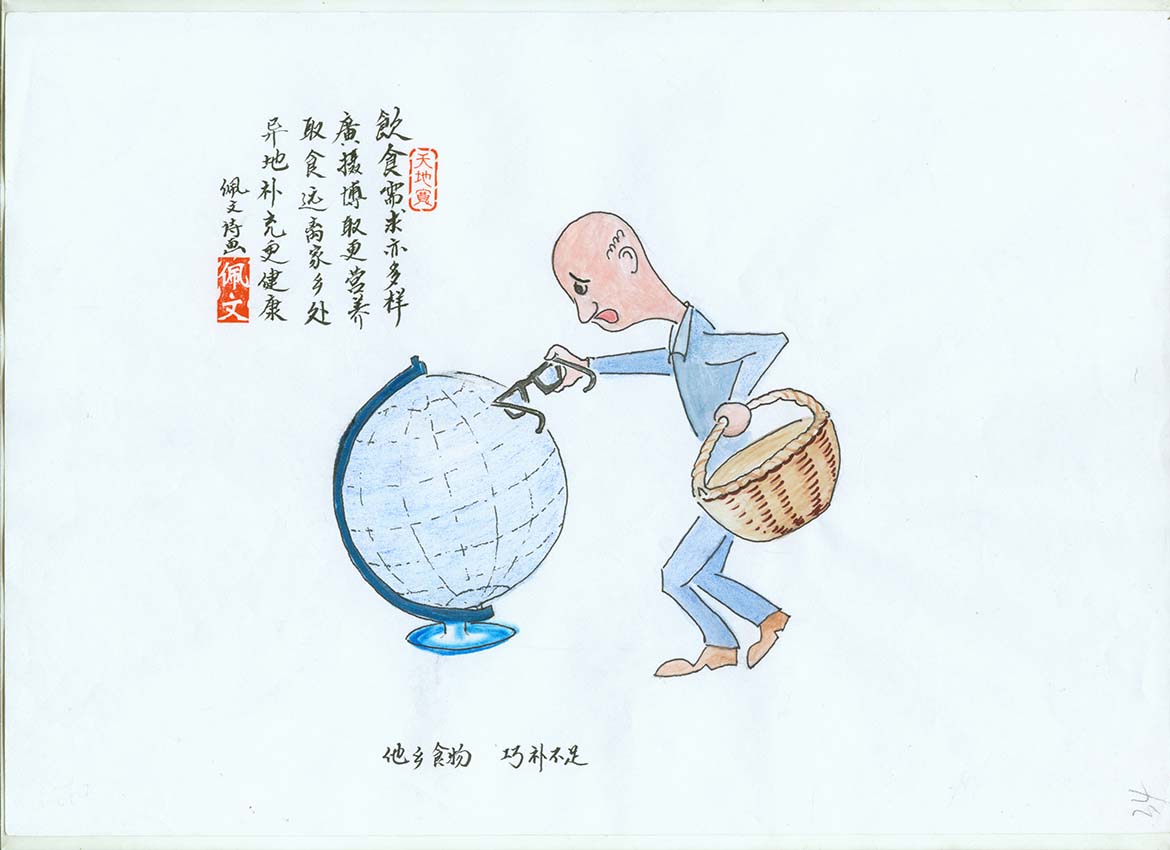 飲食需求亦多样
廣摄博取更营养
取食远离家乡处
异地补充更健康
佩文诗画
佩文
他乡食物 巧补不足
24